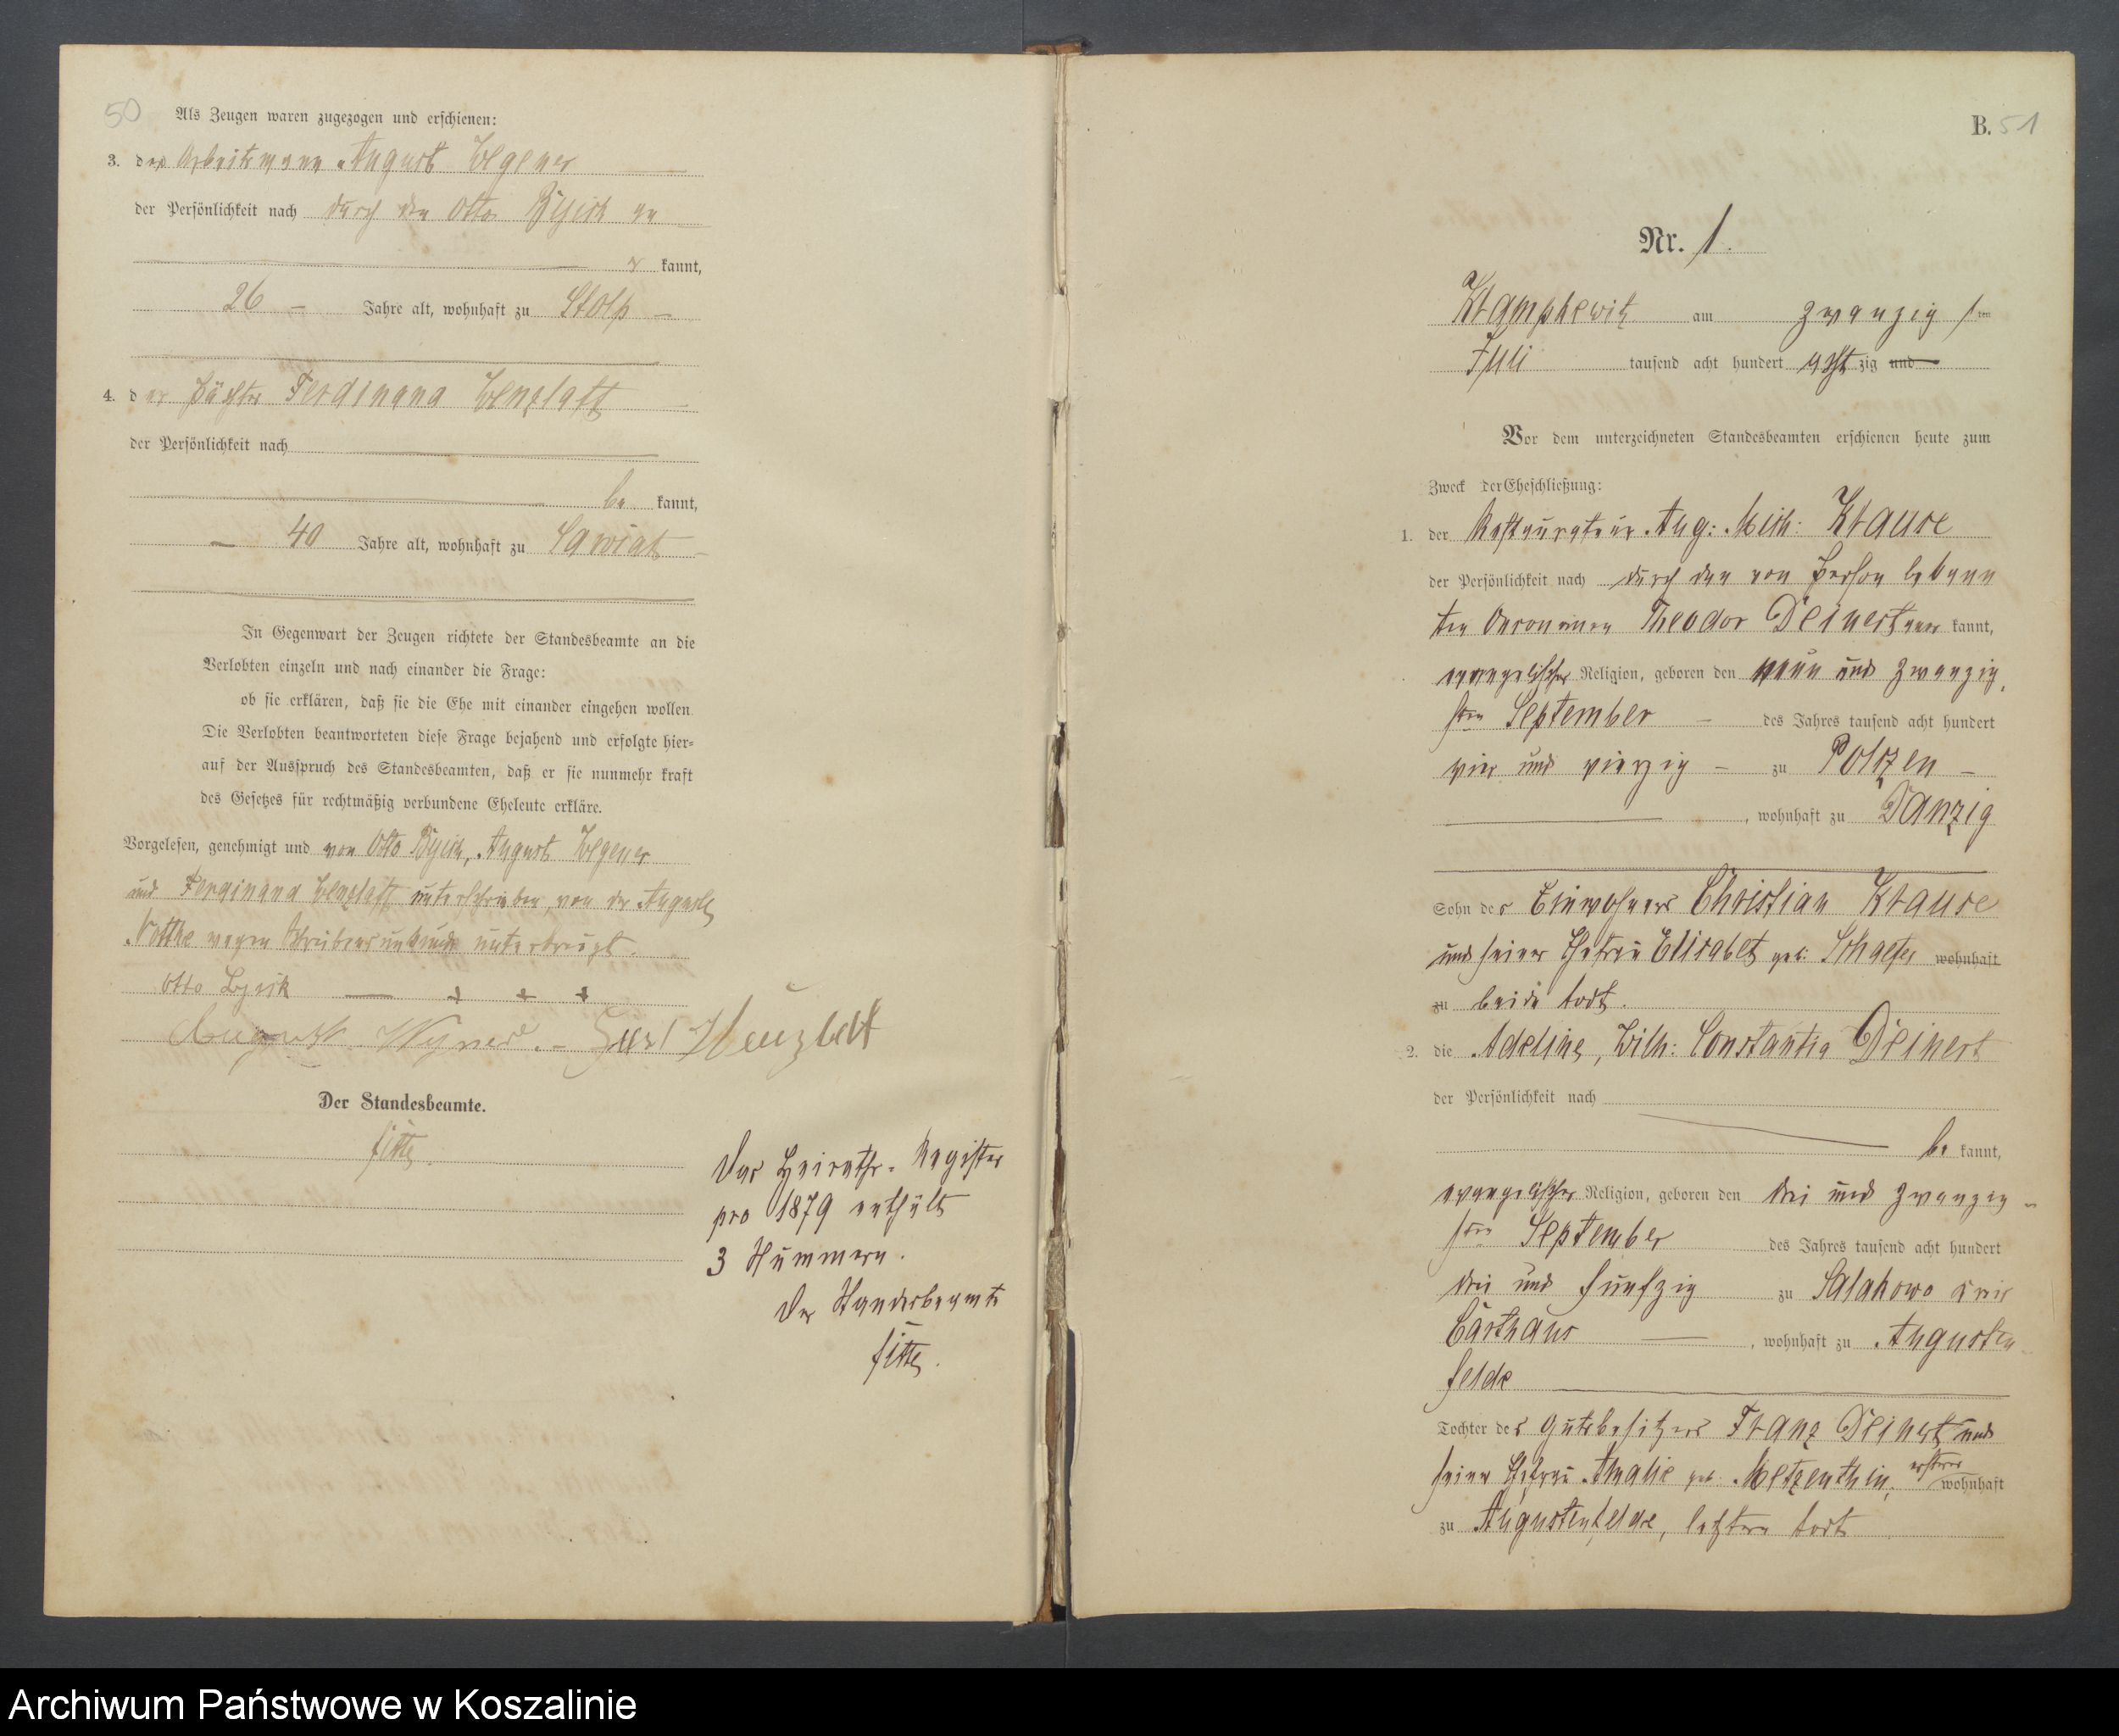 50
Als Zeugen waren zugezogen und erschienen:
3. der Arbeitsmann August Wegener
der Persönlichkeit nach durch den Otto
kannt,
26 Jahre alt, wohnhaft zu Stolp
4. der Pächter Ferdinand Wenzlaff
der Persönlichkeit nach
be kannt,
40 Jahre alt, wohnhaft zu
In Gegenwart der Zeugen richtete der Standesbeamte an die
Verlobten einzeln und nach einander die Frage:
ob sie erklären, daß sie die Ehe mit einander eingehen wollen.
Die Verlobten beantworteten diese Frage bejahend und erfolgte hier-
auf der Ausspruch des Standesbeamten, daß er sie nunmehr kraft
des Gesetzes für rechtmäßig verbundene Eheleute erkläre.
Vorgelesen, genehmigt und von Otto August Wegener
und Wenzlaff unterschrieben, von der
wegen unterkreuzt.
Otto + + +
August
Der Standesbeamte.
Das Heiraths-Register
pro 1879 enthält
3 Nummern.
Der Standesbeamte
B. 51
Nr. 1.
Krampkewitz am zwanzig sten
Juli tausend acht hundert acht zig und
Vor dem unterzeichneten Standesbeamten erschienen heute zum
Zweck der Eheschließung:
1. der Restaurateur Aug: Mich: Krause
der Persönlichkeit nach durch den von Person bekann
ten Oeconomen Theodor Deinert aner kannt,
evangelischer Religion, geboren den neun und zwanzig
sten September des Jahres tausend acht hundert
vier und vierzig zu Poltzen
, wohnhaft zu Danzig
Sohn des Einwohners Christian Krause
und seiner Ehefrau Elisabet geb: Schaefer wohnhaft
zu beide todt.
2. die Adeline, Wilh: Constantia Deinert
der Persönlichkeit nach
be kannt,
evangelischer Religion, geboren den drei und zwanzig
sten September des Jahres tausend acht hundert
drei und fünfzig zu Salakowo Kreis
Carthaus , wohnhaft zu Augusten
felde
Tochter des Gutsbesitzers Franz Deinert und
seiner Ehefrau Amalie geb. Metzenthin, erstere wohnhaft
zu Augustenfelde, letztere todt
Archiwum Państwowe w Koszalinie